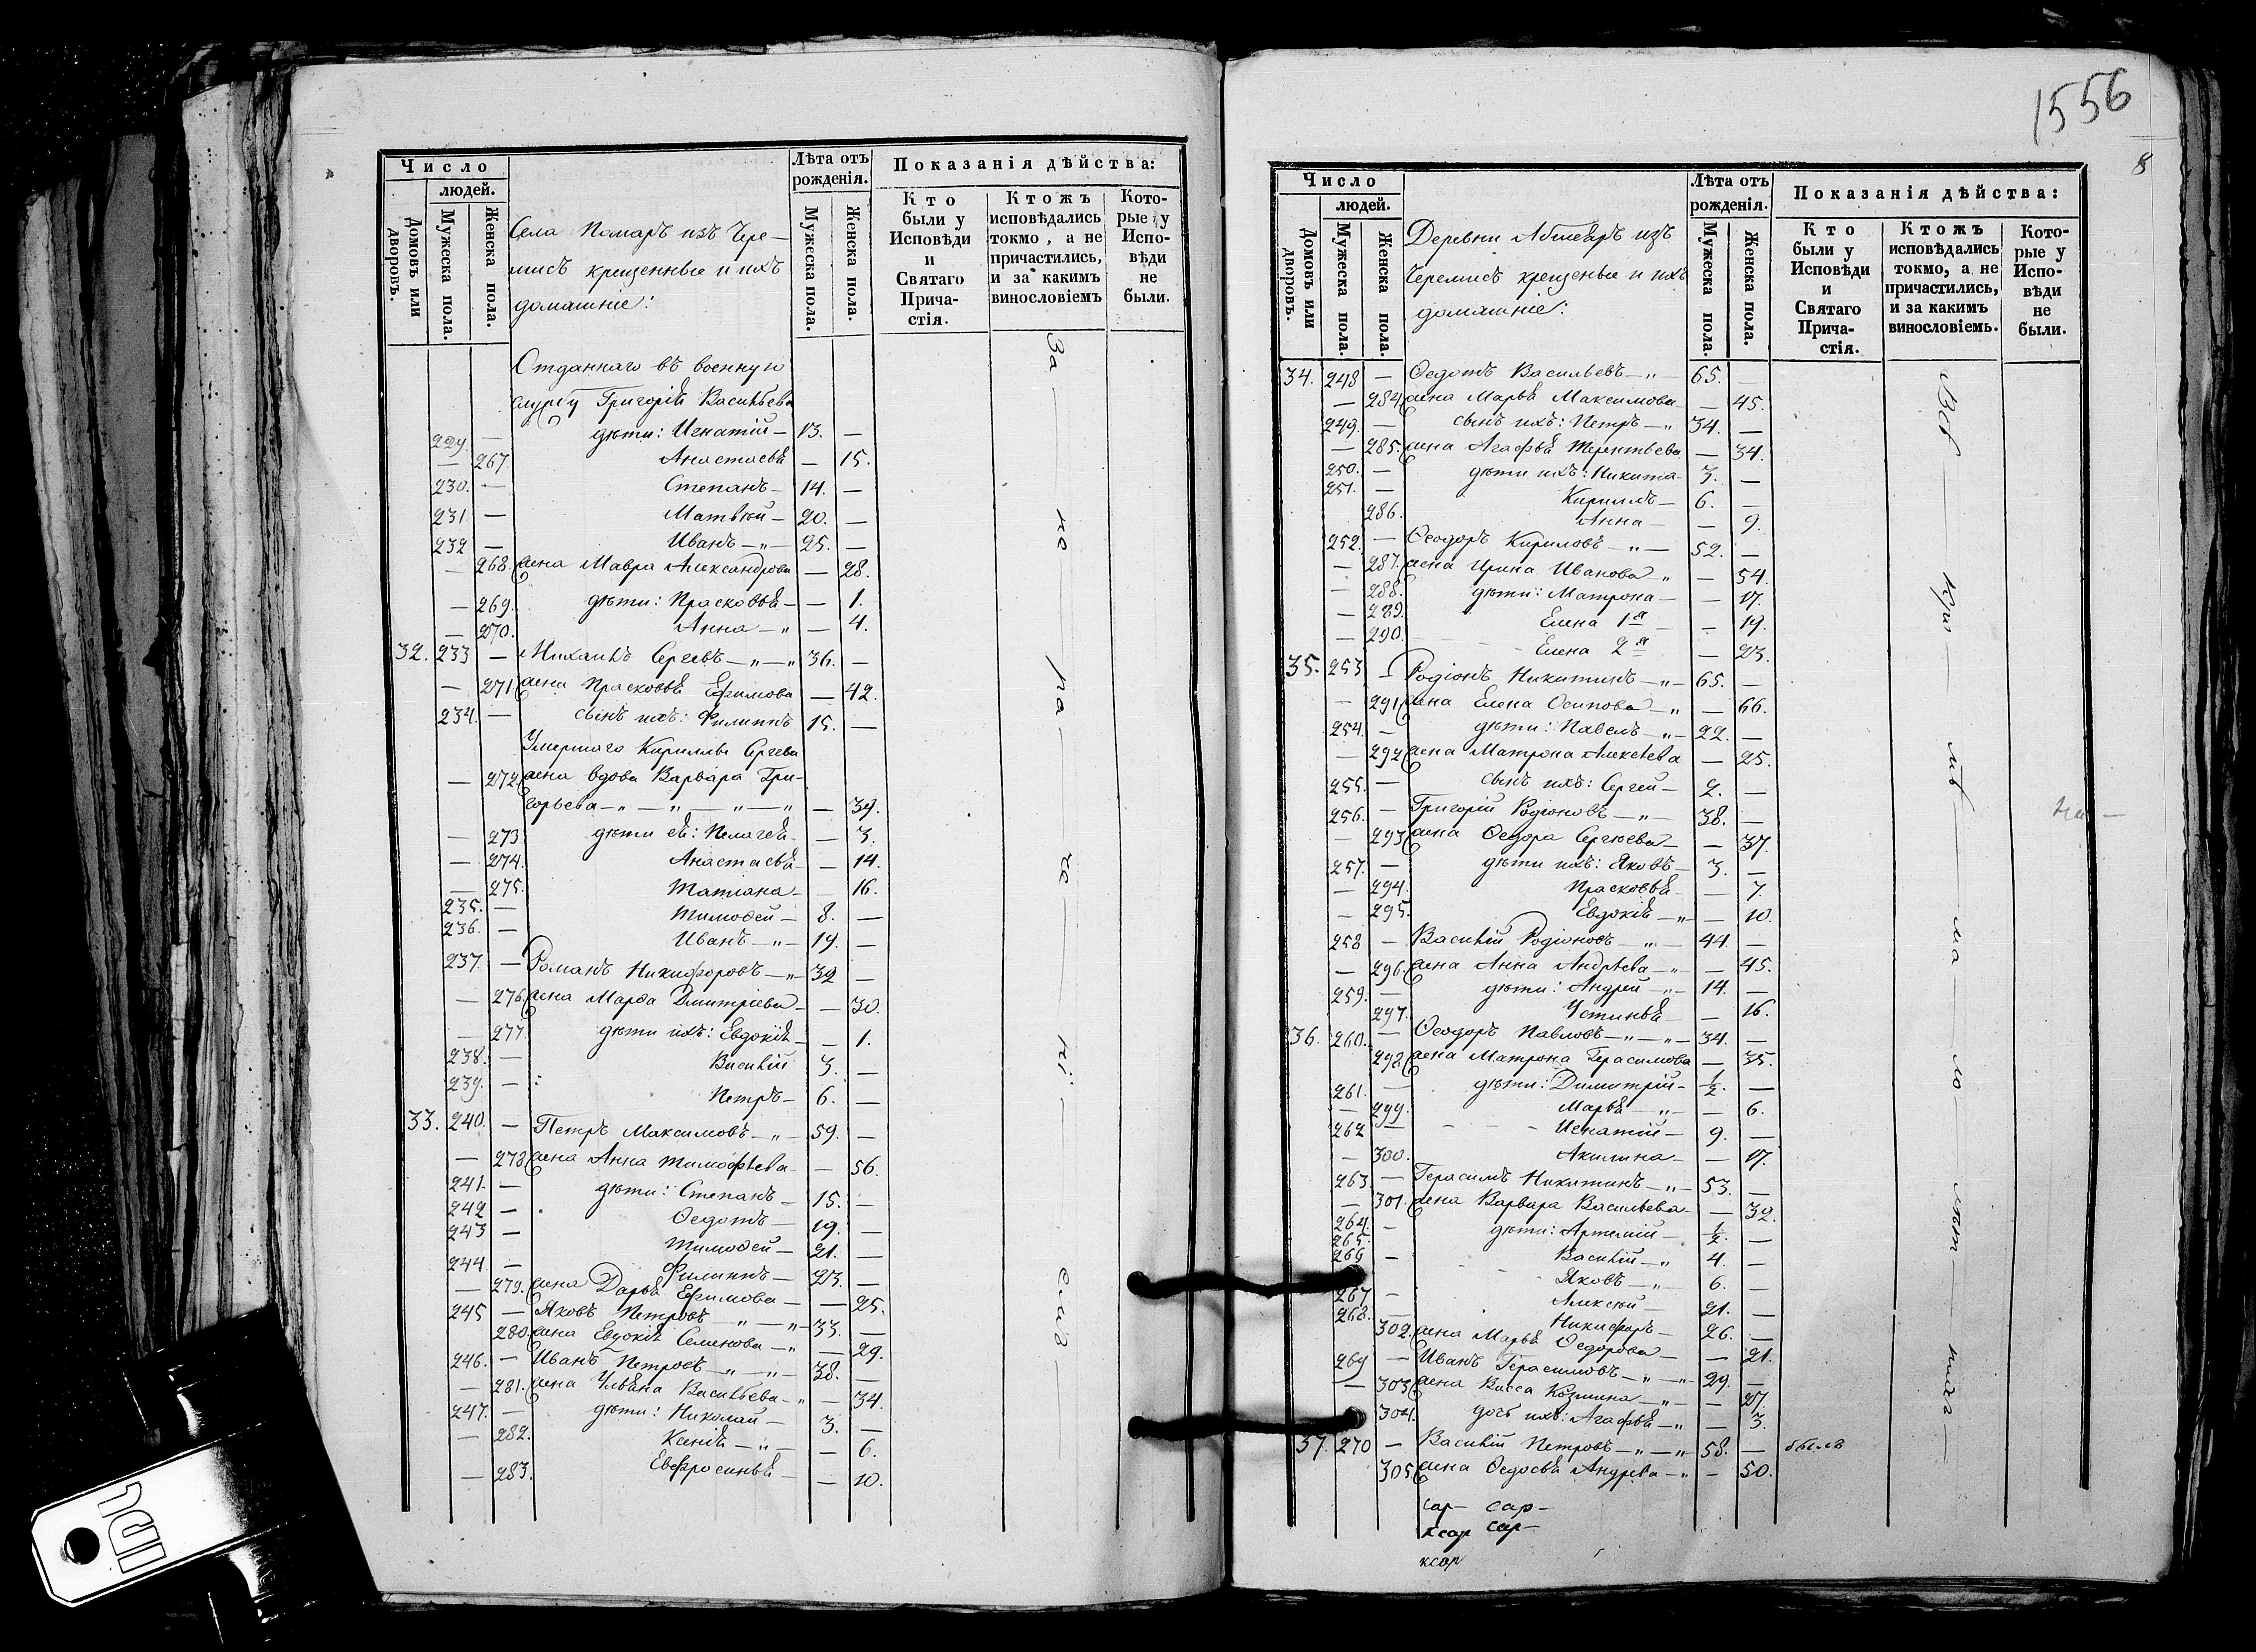 Число
людей.
Домовъ или дворовъ.
Мужеска пола.
Женска пола.
Села Помаръ изъ Чере-
мисъ крещенные и ихъ
домашніе:
Лѣта отъ
рожденія.
Мужеска пола.
Женска пола.
Показанія дѣйства:
Кто были у Исповѣди и Святаго Прича-стія.
Ктожъ исповѣдались токмо, а не причастились, и за какимъ винословіемъ
Кото-рые у Испо-вѣди не были.
Отданнаго въ военную
службу Григорія Васильева
229. — дѣти: Игнатій — 13. —
— 267 Анастасія — 15.
230. — Степанъ — 14. —
231 — Матвѣй — 20. —
232 — Иванъ —„— 25. —
— 268. жена Мавра Александрова — 28.
— 269. дѣти: Прасковья — — 1.
— 270. Анна —„ — 4.
32. 233 — Михаилъ Сергѣевъ —„—„ 36. —
— 271 жена Прасковья Ефимова — 42.
234. — сынъ ихъ: Филиппъ 15. —
Умершаго Кириллы Сергѣева
— 272 жена вдова Варвара Гри-
горьева —„—„—„—„ — 39.
— 273 дѣти ея: Пелагея — — 3.
— 274. Анастасья — — 14.
— 275. Татіана — — 16.
235. — Тимоѳей — 8. —
236. — Иванъ —„— 19. —
237. — Романъ Никифоровъ —„— 32 —
— 276 жена Марѳа Дмитріева — — 30.
— 277 дѣти ихъ: Евдокія — — 1.
238. — Василій 3. —
239. — Петръ — 6. —
33. 240. — Петръ Максимовъ —„— 59. —
— 278 жена Анна Тимофѣева — — 56.
241. — дѣти: Степанъ — 15. —
242 — Ѳедотъ — 19. —
243 — Тимоѳей — 21. —
244. — Филиппъ — 23. —
— 279. жена Дарья Ефимова — — 25.
245 — Яковъ Петровъ —„—„ 33. —
280. жена Евдокія Семенова —„ — 29.
246. — Иванъ Петровъ —„—„— 38. —
— 281. жена Ульяна Васильева —„ — 34.
247. — дѣти: Николай — 3. —
— 282. Ксенія —„— — 6.
— 283. Евфросинья — — 10.
За — не — ра — че — ні —
1556
8
Число
людей.
Домовъ или дворовъ.
Мужеска пола.
Женска пола.
Черемисъ крещеные и ихъ
домашніе:
Лѣта отъ
рожденія.
Мужеска пола.
Женска пола.
Показанія дѣйства:
Кто были у Исповѣди и Святаго Прича-стія.
Ктожъ исповѣдались токмо, а не причастились, и за какимъ винословіемъ.
Кото-рые у Испо-вѣди не были.
34. 248 — Ѳедотъ Васильевъ —„— 65. —
— 284 жена Марья Максимова — 45.
249. — сынъ ихъ: Петръ —„ 34. —
— 285. жена Агафья Терентьева — 34.
250. — дѣти ихъ: Никита — 3. —
251. — Кириллъ — 6. —
286. Анна — — 9.
252. — Ѳеодоръ Кириловъ —„— 52. —
— 287. жена Ирина Иванова „ — 54.
— 288. дѣти: Матрона — — 17.
— 289. Елена 1я — 19.
— 290. Елена 2я — 23.
35. 253 — Родіонъ Никитинъ —„— 65. —
— 291 жена Елена Осипова —„ — 66.
254. — дѣти: Павелъ —„— 22. —
— 292 жена Матрона Алексѣева — 25.
255. — сынъ ихъ: Сергей — 2. —
256. — Григорій Родіоновъ —„— 38. —
— 293 жена Ѳедора Сергѣева — — 37.
257. — дѣти ихъ: Яковъ — 3. —
— 294. Прасковья — — 7.
— 295. Евдокія —„— — 10.
258 — Василій Родіоновъ —„— 44. —
— 296. жена Анна Андрѣева —„— — 45.
259. — дѣти: Андрей —„— 14. —
297. Устинья — 16.
36. 260. — Ѳеодоръ Павловъ —„—„— 34. —
298 жена Матрона Герасимова — 35.
261. — дѣти: Димитрій — ½. —
— 299. Марья —„— — 6.
262 — Игнатій — 9. —
— 300. Акилина — — 17.
263 — Герасимъ Никитинъ —„— 53. —
— 301. жена Варвара Васильева — — 32.
264. — дѣти: Артемій — ½. —
265. Василій —„ 4. —
266 — Яковъ —„— 6. —
267 — Алексѣй — 21. —
268. — Никифоръ — 26. —
302. жена Марья Ѳедорова — — 21.
269 — Иванъ Герасимовъ —„—„ 29. —
— 303 жена Васса Козмина —„— — 27.
304. дочь ихъ: Агафья —„ — 3.
37. 270 — Василій Петровъ —„—„ 58. — былъ
305. жена Ѳедосья Андрѣева —„ — 50.